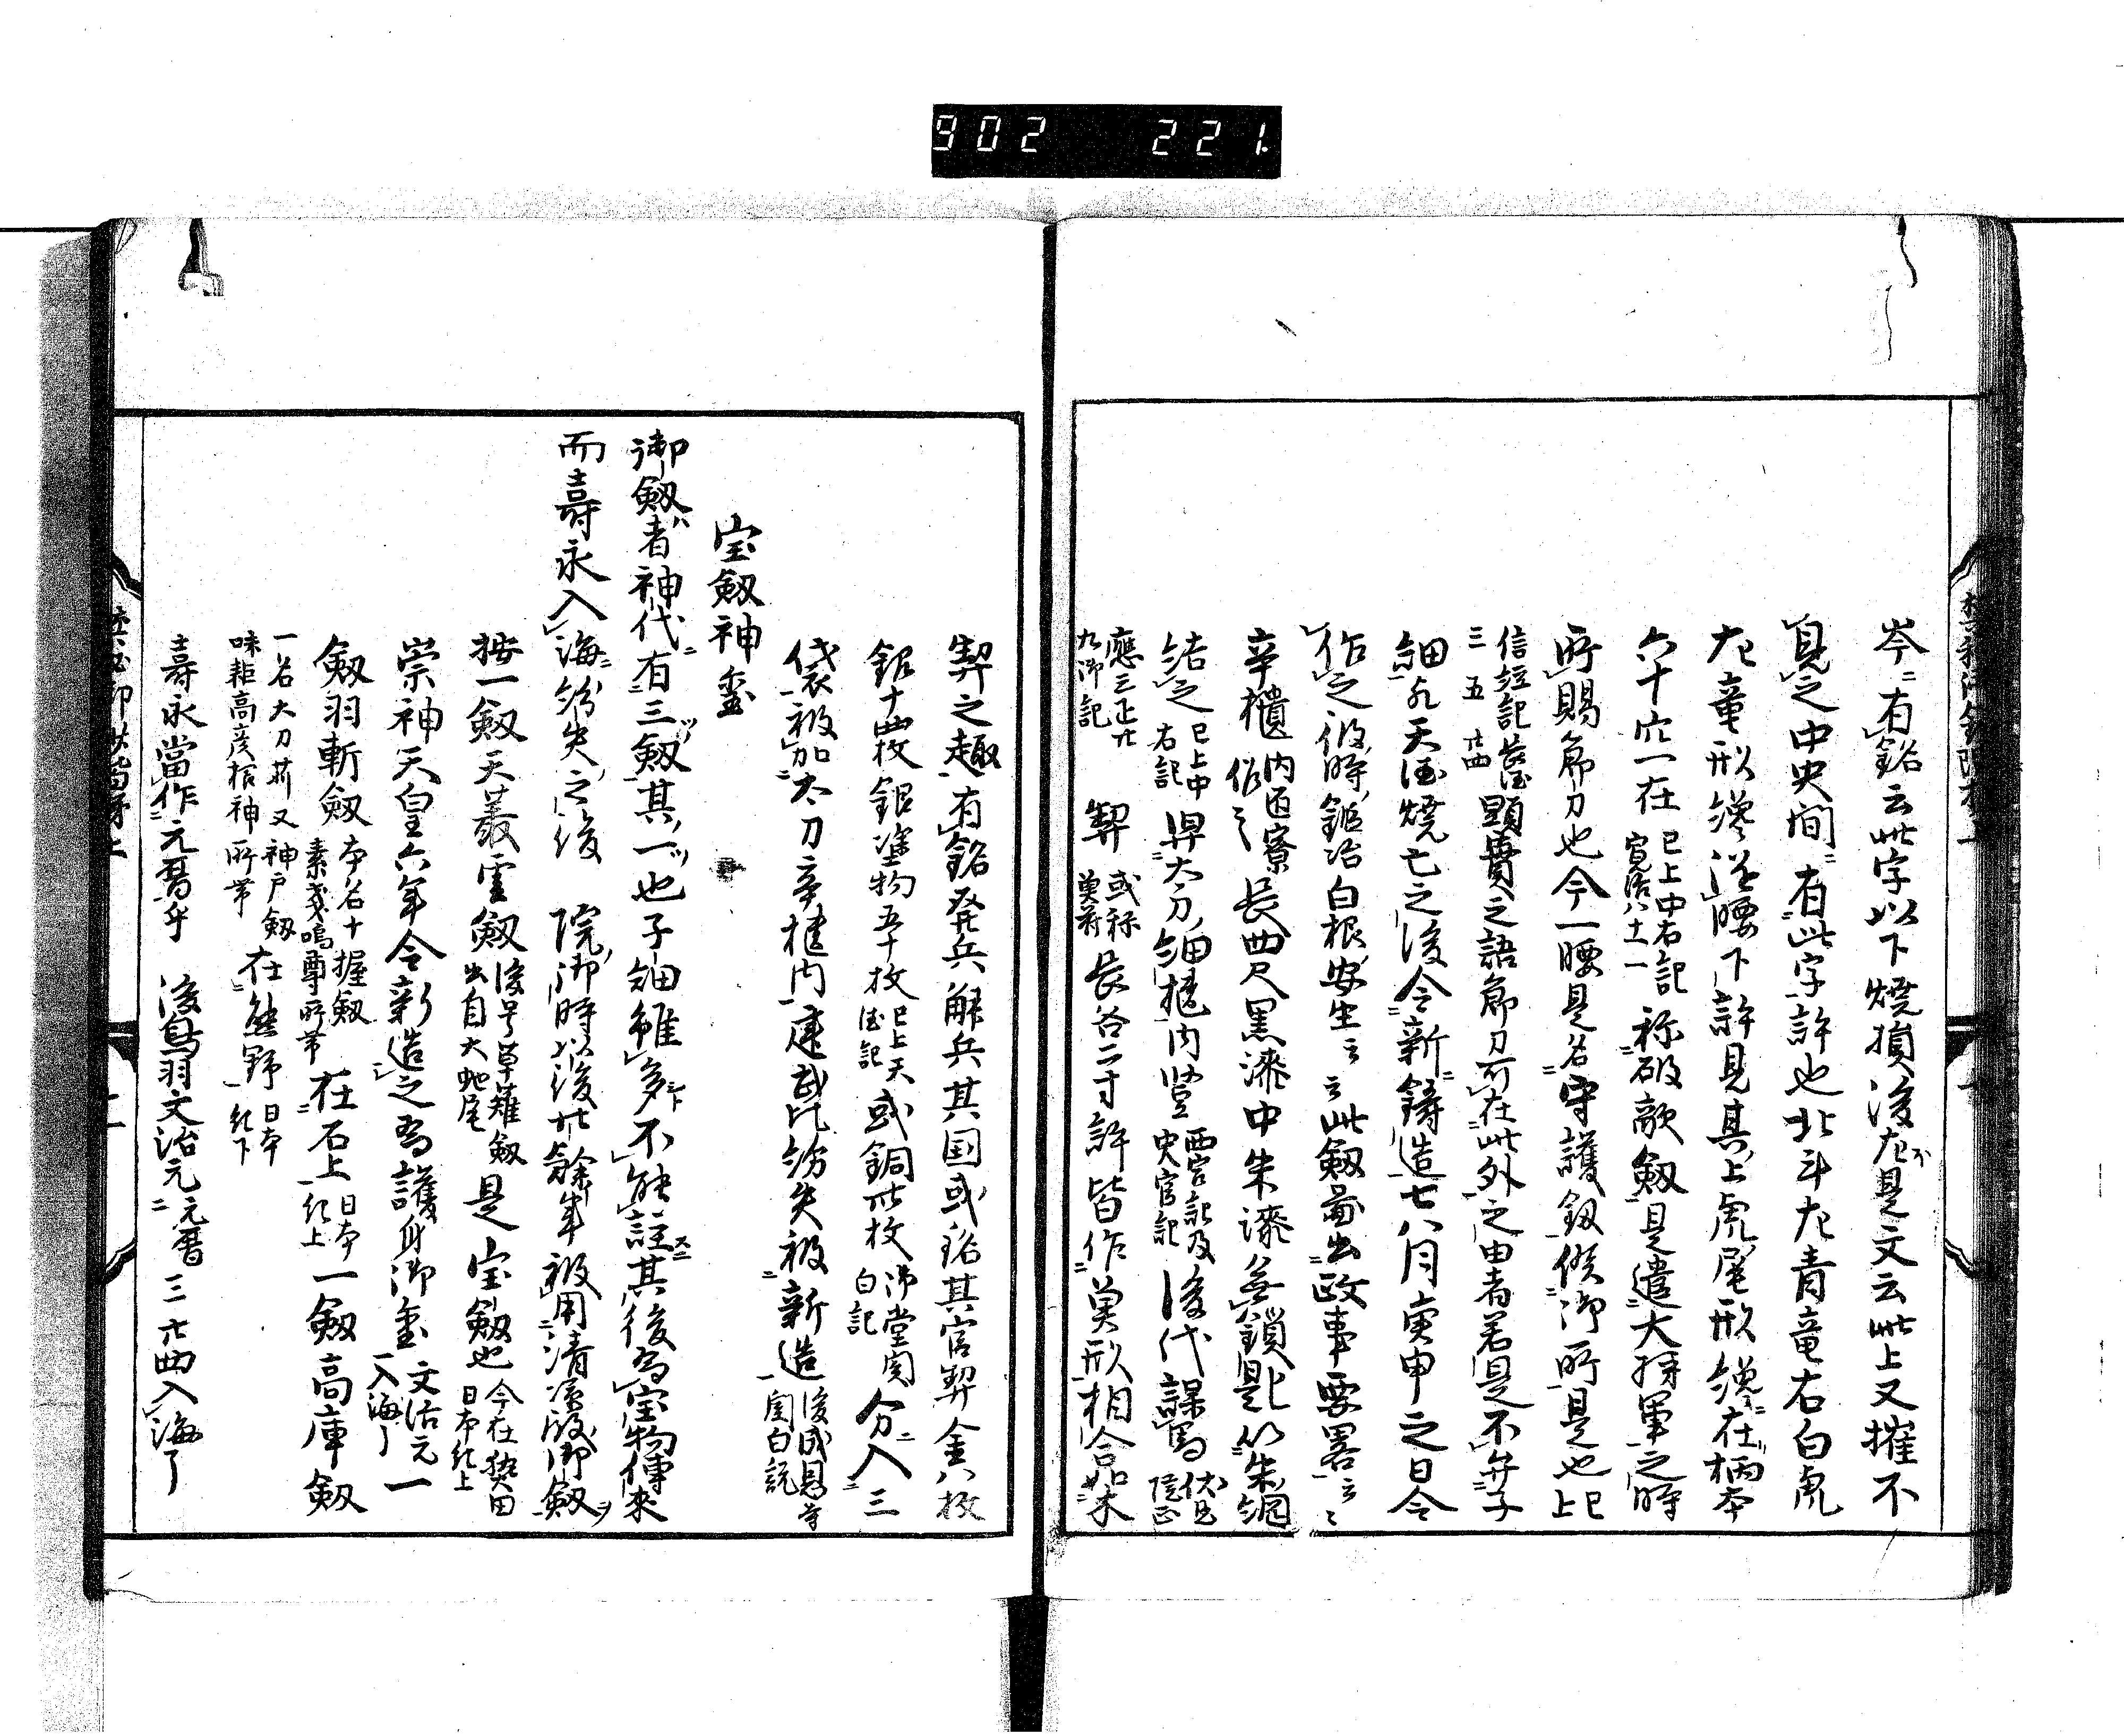 902 221.
岑有銘云此字以下燒損後尤是文云此上又摧不
見之中央間有此字許也北斗左青竜右白虎
左童形纔從腰下許見其上虎尾形纔在柄本
六十穴一在已上中右記寛治八十一一称破敵劔是遣大将軍之時
所賜節刀也今一腰是名守護劔候御所是也已上
信経記長徳三五廿四顕費之語節刀可在此外之由者若是不弁子
細歟天徳燒亡之後令新鋳造七八月庚申之日令
作之彼時鍛冶白根安生云云此劔図出政事要畧云云
辛櫃内匠寮作之長四尺黒漆中朱漆無鎖匙以朱綱
結之已上中右記畀大刀細櫃内竪西宮記及史官記後代謀馬
應三正廿九御記 契或称萬符長各二寸許皆作萬形相合如木
契之趣有銘発兵解兵其国或銘其官契金八枚
銀十四枚銀塗物五十枚已上天徳記或銅廿枚御堂関白記分入三
袋被加大刀辛櫃内建武比紛失被新造後成恩寺関白説
宝劔神璽
御劔者神代有三劔其一也子細雖多不能註其後為宝物傳来
而壽永入海紛失之後 院御時以後廿餘年被用清凉殿御劔
按一劔天叢雲劔後号草薙劔出自大蛇尾是宝劔也今在熱田日本紀上
崇神天皇六年令新造之為護身御璽文治元入海了一
劔羽斬劔本名十握劔素戔嗚尊所帯在石上日本紀上一劔高庫劔
一名大刀苅又神戸劔味耜高彦根神所帯在熊野日本紀下
壽永當作元暦乎 後鳥羽文治元元暦三廿四入海了